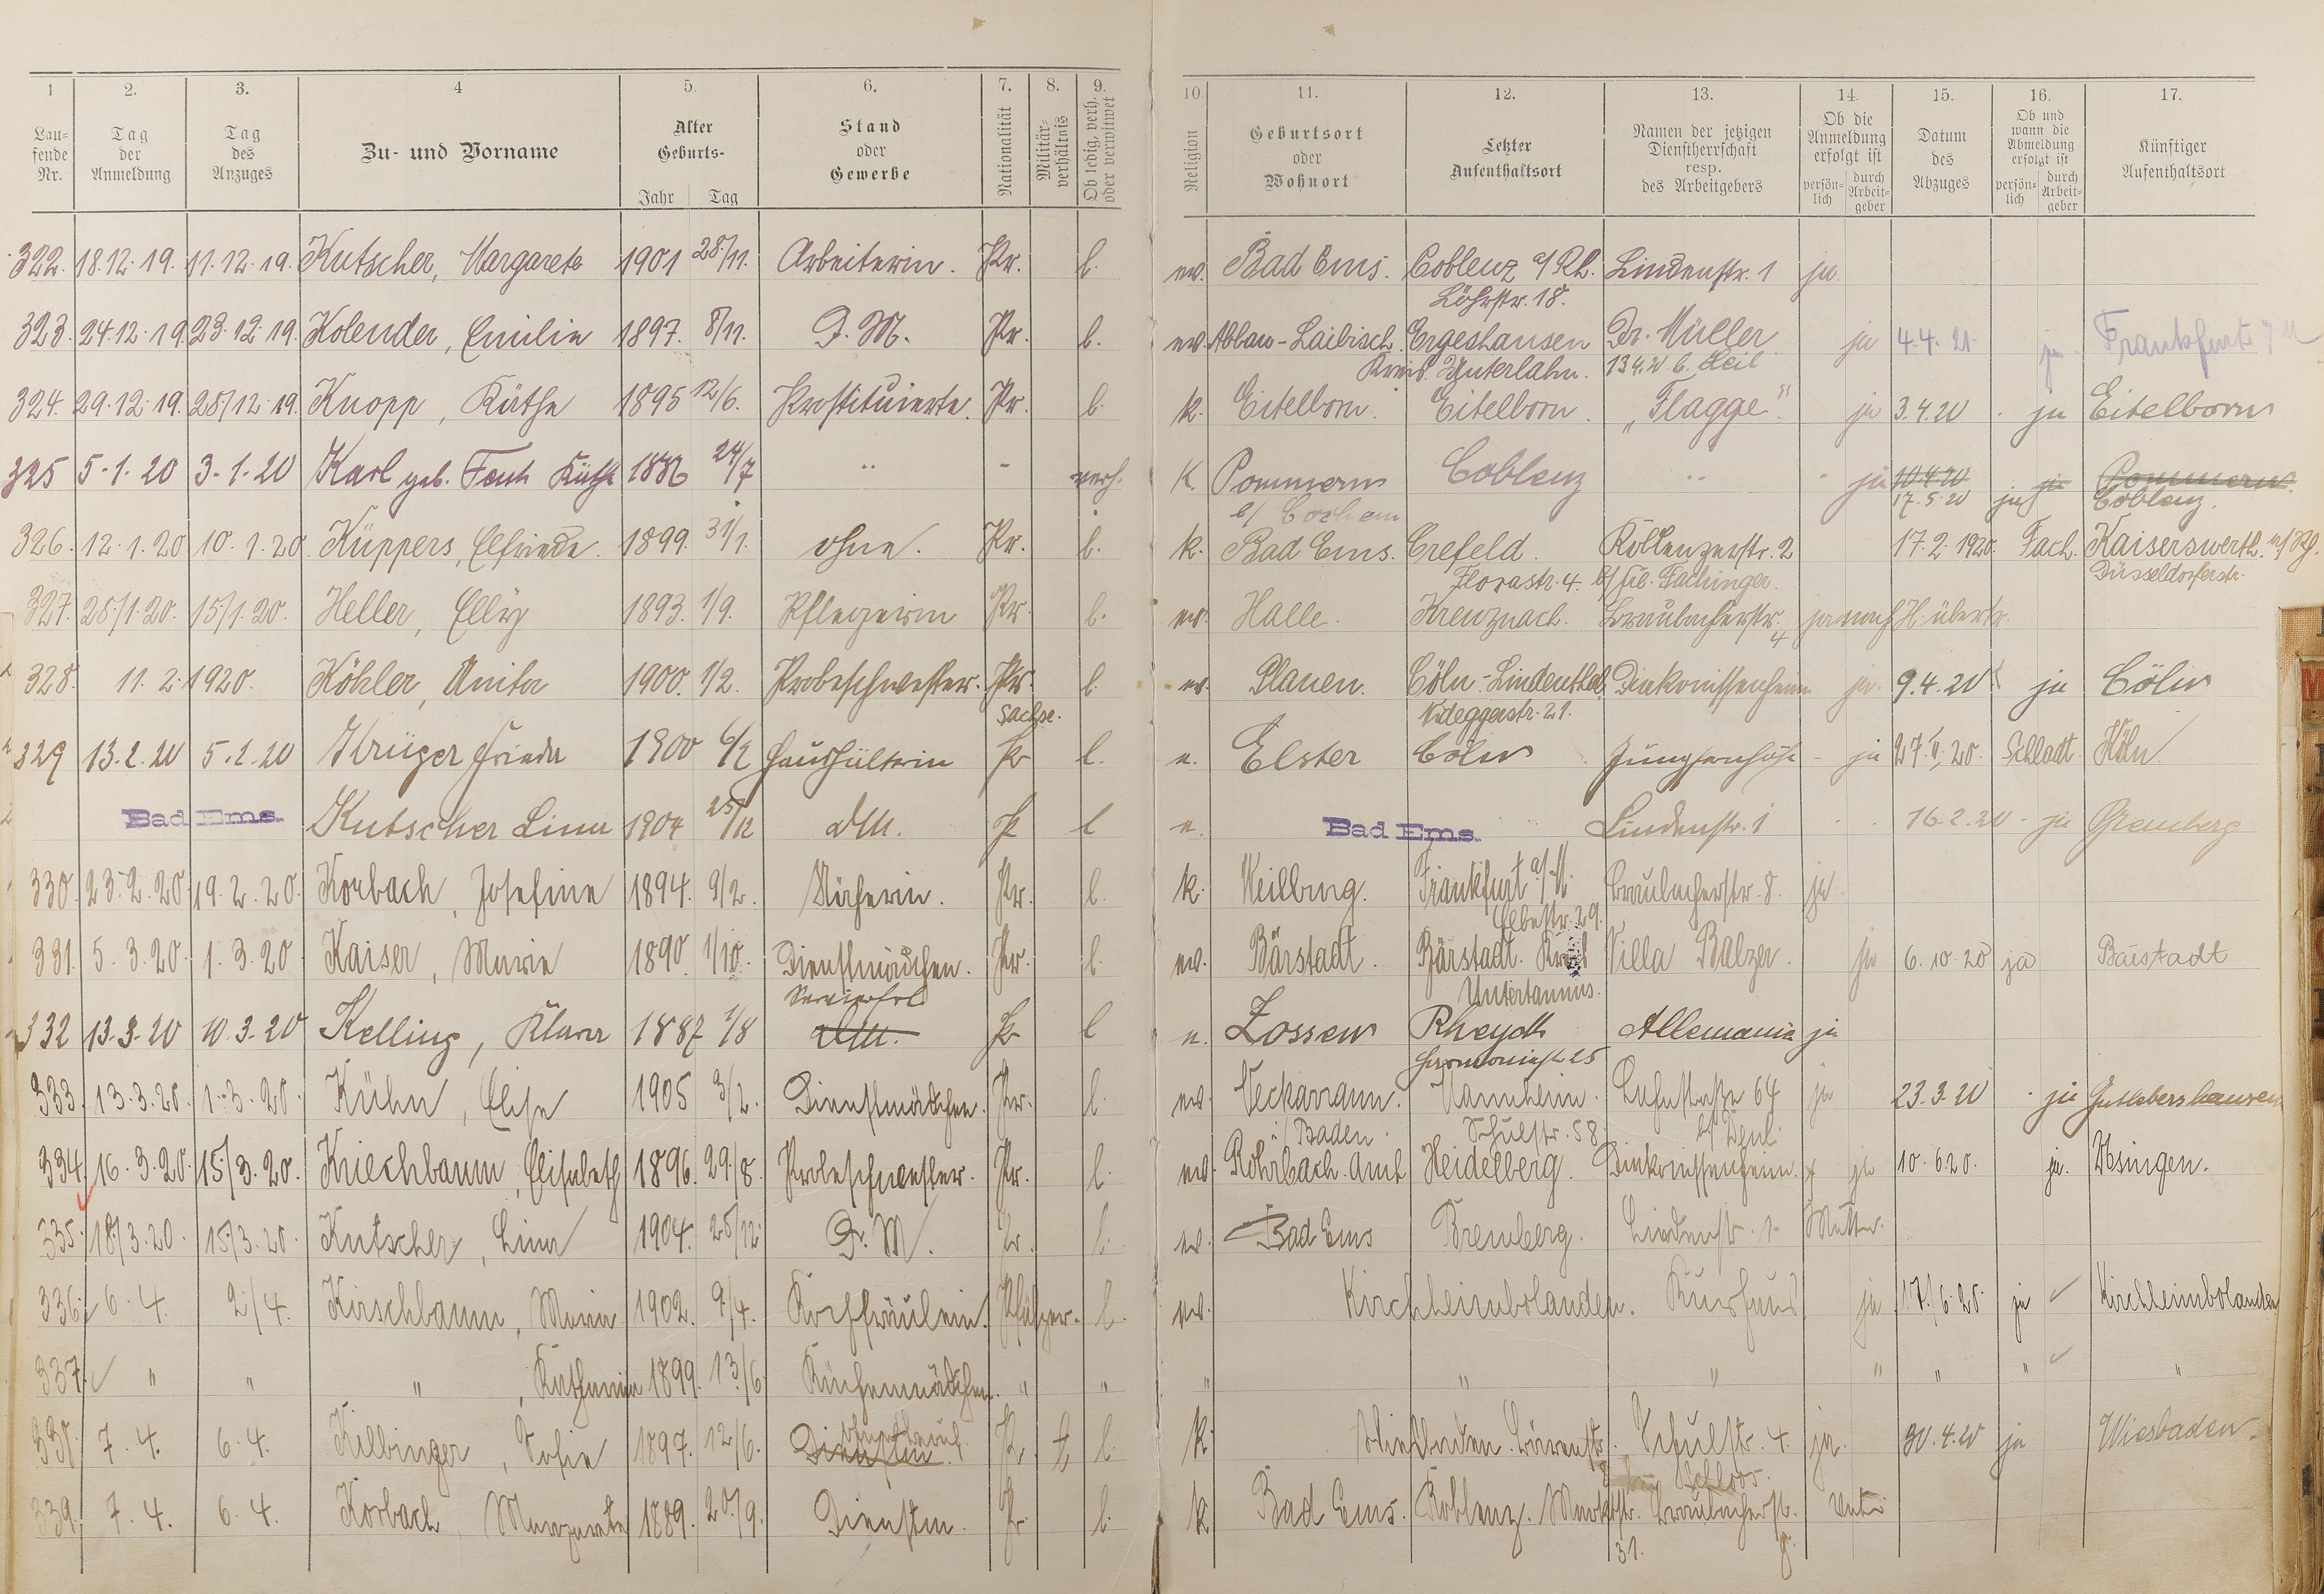 1 2. 3. 4 5. 6. 7. 8. 9. 10. 11. 12. 13. 14. 15. 16. 17.
Lau=
fende
Nr.
Tag
der
Anmeldung
Tag
des
Anzuges
Zu- und Vorname
Alter
Geburts-
Jahr Tag
Stand
oder
Gewerbe
Nationalität
Militär-
verhältnis
Ob ledig, verh.
oder verwitwet
Religion
Geburtsort
oder
Wohnort
Letzter
Aufenthaltsort
Namen der jetzigen
Dienstherrschaft
resp.
des Arbeitgebers
Ob die
Anmeldung
erfolgt ist
persön-
lich
durch
Arbeit-
geber
Datum
des
Abzuges
Ob und
wann die
Abmeldung
erfolgt ist
persön-
lich
durch
Arbeit-
geber
Künftiger
Aufenthaltsort
322. 18.12.19. 11.12.19. Kutscher, Margarete 1901 28./11. Arbeiterin. Pr. l. ev. Bad Ems. Coblenz a/Rh. Lindenstr. 1 ja
Löhrstr. 18.
323. 24.12.19. 23.12.19. Kolender, Emilie 1897. 8/11. D. M. Pr. l. ev. Ergeshausen Dr. Müller ja 4.4.21. ja Frankfurt
Kreis Unterlahn.
324. 29.12.19. 28/12.19. Knopp, Käthe 1895 12/6. Prostituierte. Pr. l. k. Eitelborn. Eitelborn. „Flagge“. ja 3.4.20 ja Eitelborn
325 5.1.20 3.1.20 Karl geb. Käthe 1886 24/7 " - verh. k. Pommern Coblenz " ja 10.4.20 ja Pommern.
b/ Cochem 17.5.20 ja Coblenz.
326. 12.1.20 10.1.20. Küppers, Elfriede. 1899. 31/1. ohne. Pr. l. k. Bad Ems. Crefeld. Koblenzerstr. 2 17.2.1920. Fach. Kaiserswerth a/Rh.
Florastr. 4. b/ Fachinger. Düsseldorferstr.
327. 28/1.20. 15/1.20. Heller, Elly 1893. 1/9. Pflegerin Pr. l. ev. Halle. Kreuznach. Braubacherstr. 4 ja nach H. übertr.
328. 11.2.1920. Köhler, Anita 1900. 1/2. Probeschwester. Pr. l. ev. Plauen. Cöln-Lindenthal Diakonissenheim ja. 9.4.20 ja Cöln
Sachse. Nideggerstr. 21.
329 13.2.20 5.2.20 Krüger Frieda 1900 6/2 Haushälterin Pr l. e. Elster Cöln Jungfernhöhe - ja 27.V.20. Schladt. Köln
Bad Ems. Kutscher Lina 1904 25/12 DM. P l e. Bad Ems. Lindenstr. 1 16.2.20 - ja
330. 23.2.20. 19.2.20. Korbach, Josefine 1894. 9/2. Näherin. Pr. l. k. Weilburg. Frankfurt a/M. Braubacherstr. 8. ja.
Elbestr. 29.
331. 5.3.20. 1.3.20 Kaiser, Marie 1890. 1/10. Dienstmädchen. Pr. l. ev. Bärstadt. Bärstadt. Kreis Villa Balzer. ja 6.10.20 ja Bärstadt
Untertaunus.
332 13.3.20 10.3.20 Kelling, Klara 1887 1/8 DM. Pr l e. Zossen Rheydt Allemania ja
Harmoniestr. 25
333. 13.3.20. 1.3.20. Kühn, Elise 1905 3/2. Dienstmädchen. Pr. l. ev. Neckarrann. Mannheim. Lahnstraße 64 ja 23.3.20 - ja
i/ Baden. Schulstr. 58.
334 16.3.20 15/3.20. Kriechbaum, Elisabeth 1896. 29/8. Probeschwester. Pr. l. ev. Rohrbach. Amt Heidelberg. Diakonissenheim. ja 10.6.20. ja. Usingen.
335. 18/3.20. 15/3.20. Kutscher, Lina 1904. 25/12. D. M. Pr. l. ev. Bad Ems Bremberg. Lindenstr. 1. Mutter.
336. 6.4. 2/4. Kirschbaum, Maria 1902. 9/4. Kochfräulein. Pfälzer. l. ev. Kirchheimbolanden. Kurhaus ja 17./6.20. ja Kirchheimbolanden
337. " " ", Katharina 1899. 13/6. Küchenmädchen. " " " " " " " " "
338. 7.4. 6.4. Kilbinger, Sofie 1897. 12/6. Dienstm. Pr. l. k. Wiesbaden. Schulstr. 4. ja. 30.4.20 ja Wiesbaden.
Schloss.
339. 7.4. 6.4. Korbach, Margarete 1889. 20./9. Dienstm. Pr. l. k Bad Ems. Koblenz. Marktstr. Braubacherstr.
31. 8.